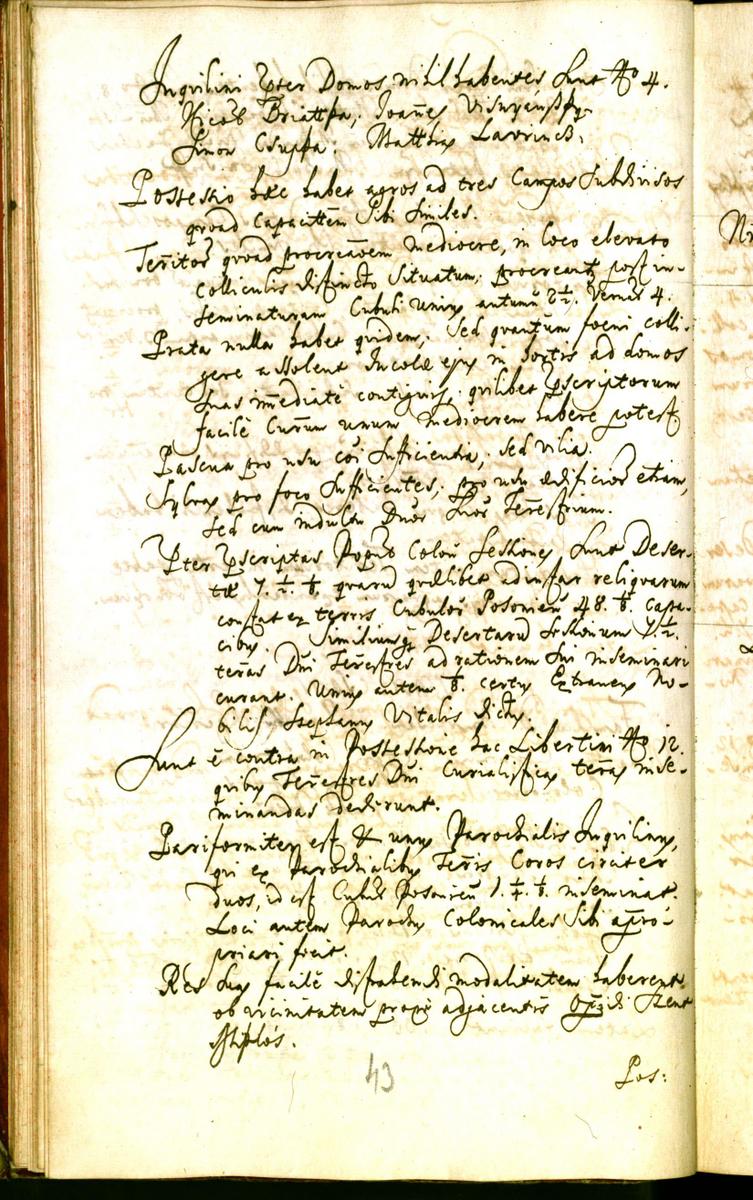 Inquilini prter Domos nihil habentes sunt No 4.
Nicol Briatka, Joanes
Simon Csupka. Matthias Lavrincs.
Possessio hæc habet agros ad tres Campos subdivisos
quoad Capacittem sibi similes.
quoad procreaõem mediocre, in loco elevato
colliculis distincto situatum. procreant post in-
seminaturam Cubuli unius autumñ 2½. Vernæ 4.
Prata nulla habet quidem, sed quantum foeni colli-
gere assolent Incolæ ejus in hortis ad domos
suas imediatè contiguis, quilibet prscriptorum
facilè Currum unum mediocrem habere potest
Pascua pro usu coi sufficientia, sed vilia.
Sylvas pro foco sufficientes, pro usu ædificior etiam,
sed cum indultu Dnor suor Terestrium.
Prter prscriptas Coloñ Sessiones sunt Deser-
tæ 7. ½. ⅛. quarũ quælibet ad instar reliquarum
constat ex terris Cubulor Posonieñ 48. ⅛. capa-
cibus. Similiumq Desertarũ Sessionum 7.½.
teras Dni Terestres ad rationem sui inseminari
curant. Unius autem ⅛. certus Extraneus No-
bilis Stephanus Vitalis dictus.
Sunt è contra in Possessione hac Libertini No 12.
quibus Terestres Dni Curialisticas teras inse-
minandas dederunt.
Pariformiter est & unus Parochialis Inquilinus,
qui ex Parochialibus Teris Coros circiter
duos, id est Cubul Posonieñ 1. ¼. ⅛. inseminat.
Loci autem Parochus Colonicales sibi apro-
priari fecit.
Res suas facilè distrahendi modalitatem haberent
ob vicinitatem propè adjacentis Oppidi Szent
Miklós.
43
Pos: